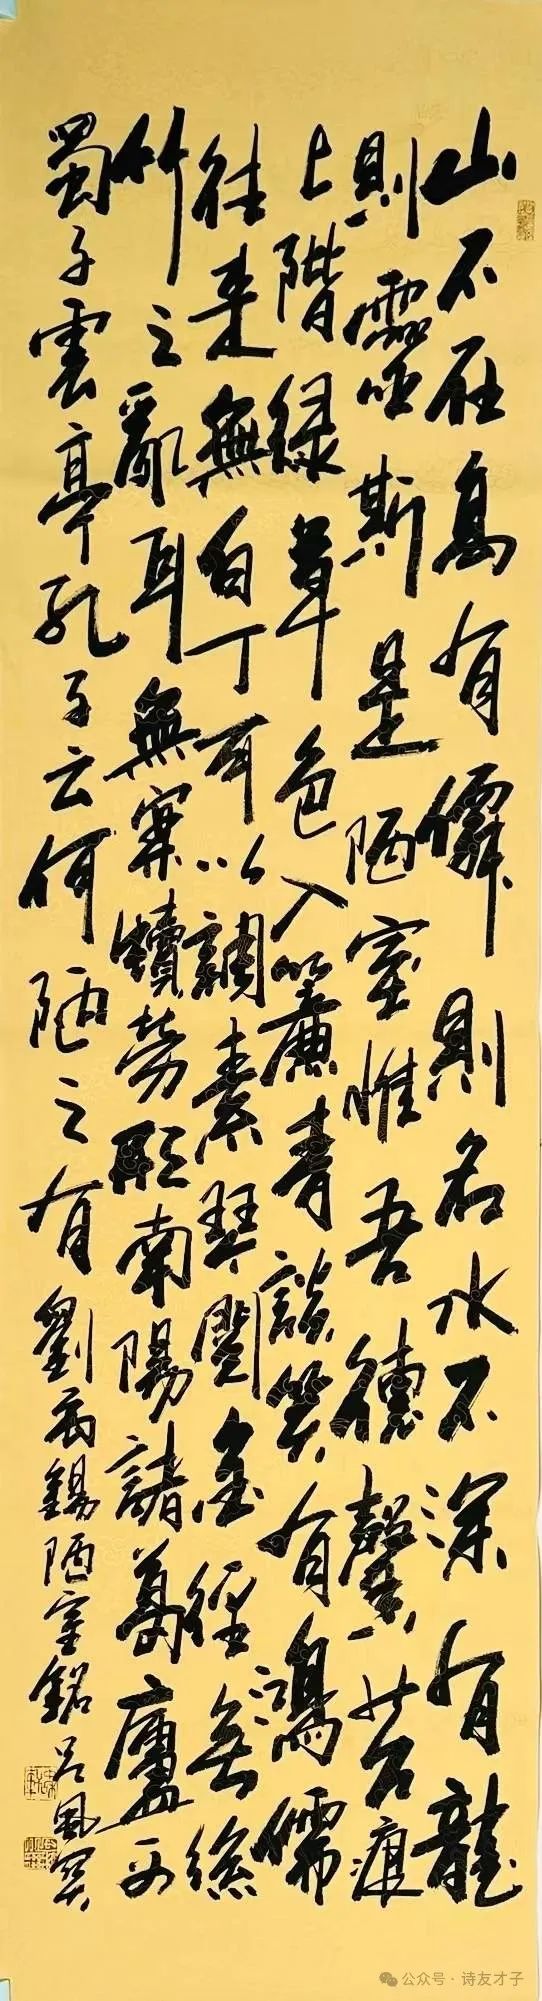 山不在高有僊則名水不深有龍
則靈斯是陋室惟吾德馨苔痕
上階緑草色入簾青談笑有鴻儒
往来無白丁可以調素琴閲金經無絲
竹之亂耳無案牘勞形南陽諸葛廬西
蜀子雲亭孔子云何陋之有劉禹錫陋室銘吕風
公众号·诗友才子